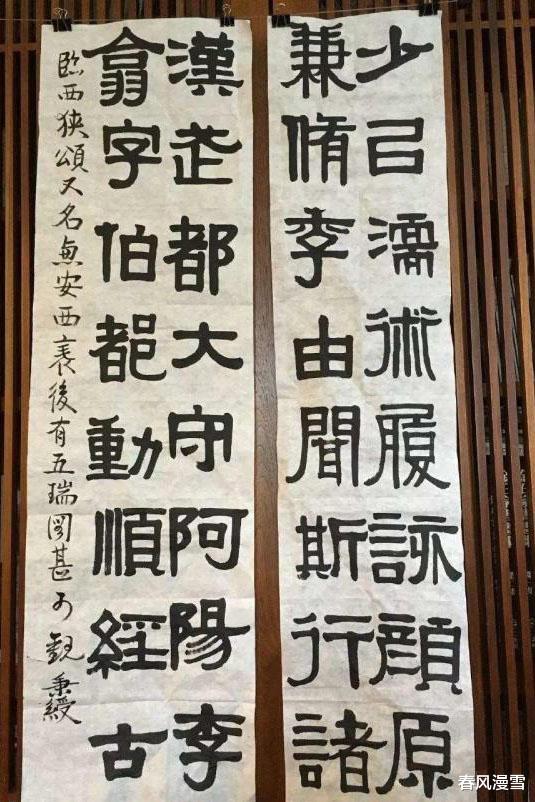 少㠯濡術履詠顏原
兼脩季由聞斯行諸
漢武都大守阿陽李
翕字伯都動順經古
臨西狹頌又名惠安西表後有五瑞圖甚可觀 秉綬
春风漫雪